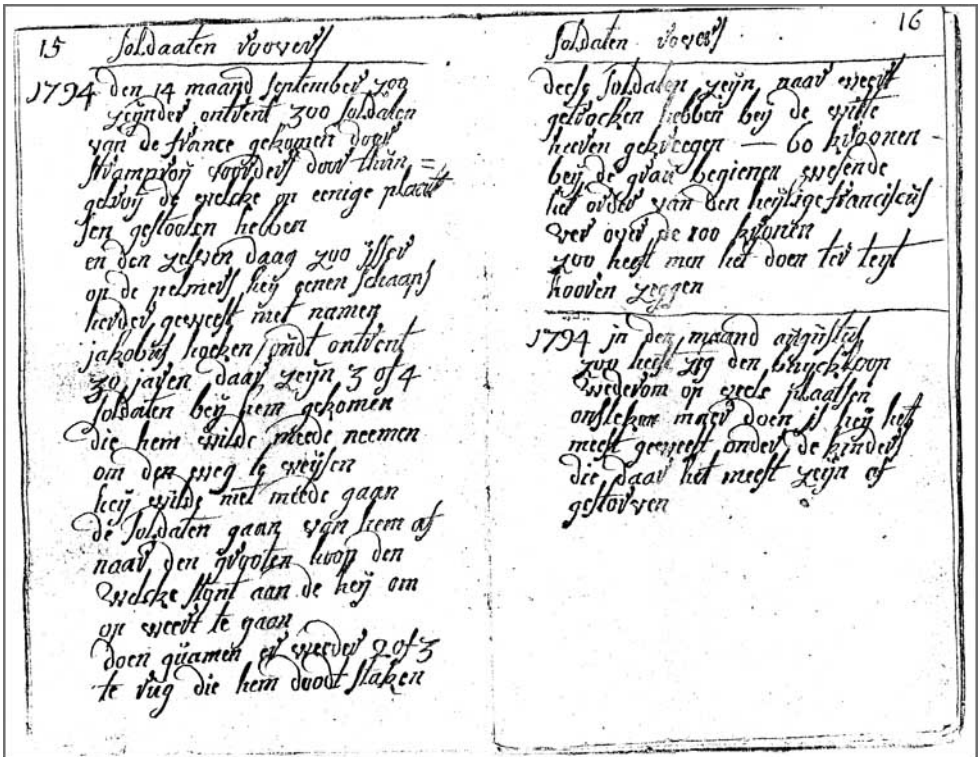 15 soldaaten roovers
1794 den 14 maand september zoo
zeijnder ontrent 300 soldaten
van de france gekomen door
stramproij voorders door thun=
gelroij de welke op eenige plaat
sen gestoolen hebben
en den zelven daag zoo isser
op de pelmers heij eenen schaaps
herder geweest met namen
jakobus hoeken oudt ontrent
30 jaren daar zeijn 3 of 4
soldaten beij hem gekomen
die hem wilde meede neemen
om den weg te weijsen
heij wilde niet meede gaan
de soldaten gaan van hem af
naar den grooten hoop den
welcke stont aan de heij om
op weert te gaan
doen quamen er weeder 2 of 3
te rug die hem doodt staken
16
soldaten roovers
deese soldaten zeijn naar weert
getrocken hebben beij de witte
heeren gekreegen — 60 kroonen
beij de grau begienen wesende
het order van den heijlige franciscus
ver over de 100 kronen
zoo heeft men het doen ter teijt
hooren zeggen
1794 in den maand augustus
zoo heeft zig den buyckloop
wederom op veele plaatsen
ontsteken maer doen is heij het
meest geweest onder de kinders
die daar het meest zeijn af
gestorven